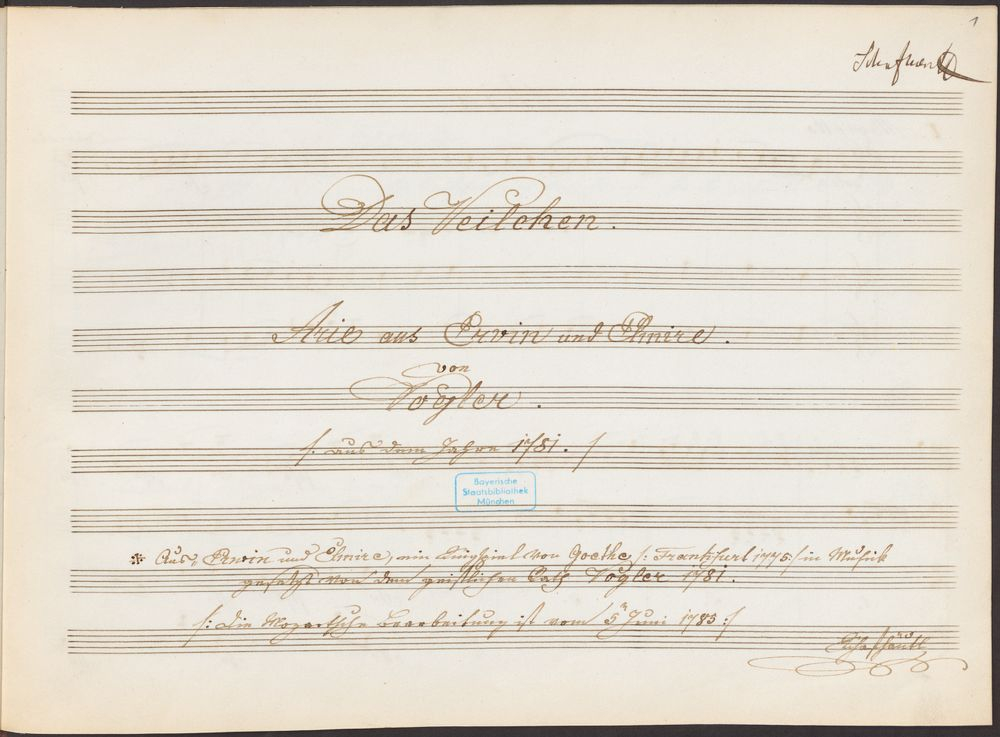 1
Das Veilchen.
Arie aus Ervin und Elmire.
von
Vogler.
/: aus dem Jahre 1781. /
Bayerische
Staatsbibliothek
München
* Aus „Erwin und Elmire, ein Singspiel von Goethe /: Frankfurt 1775 :/ in Musik
gesetzt von dem geistlichen Rath Vogler 1781.
/: Die Mozartsche Bearbeitung ist vom 5n Juni 1783 :/